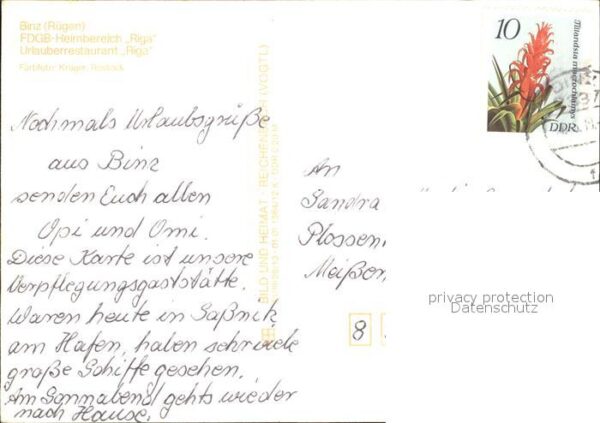 Binz (Rügen)
FDGB-Heimbereich „Riga"
Urlauberrestaurant „Riga"
Farbfoto: Krüger, Rostock
Nochmals Urlaubsgrüße
aus Binz
senden Euch allen
Opi und Omi.
Diese Karte ist unsere
Verpflegungsgaststätte.
Waren heute in Saßnitz
am Hafen, haben schrickle
große Schiffe gesehen.
Am Sonnabend gehts wieder
nach Hause.
BILD UND HEIMAT REICHENBACH (VOGTL)
10
Tillandsia macrochlamys
DDR
An
Sandra
Plossen
Meißen
8
privacy protection
Datenschutz